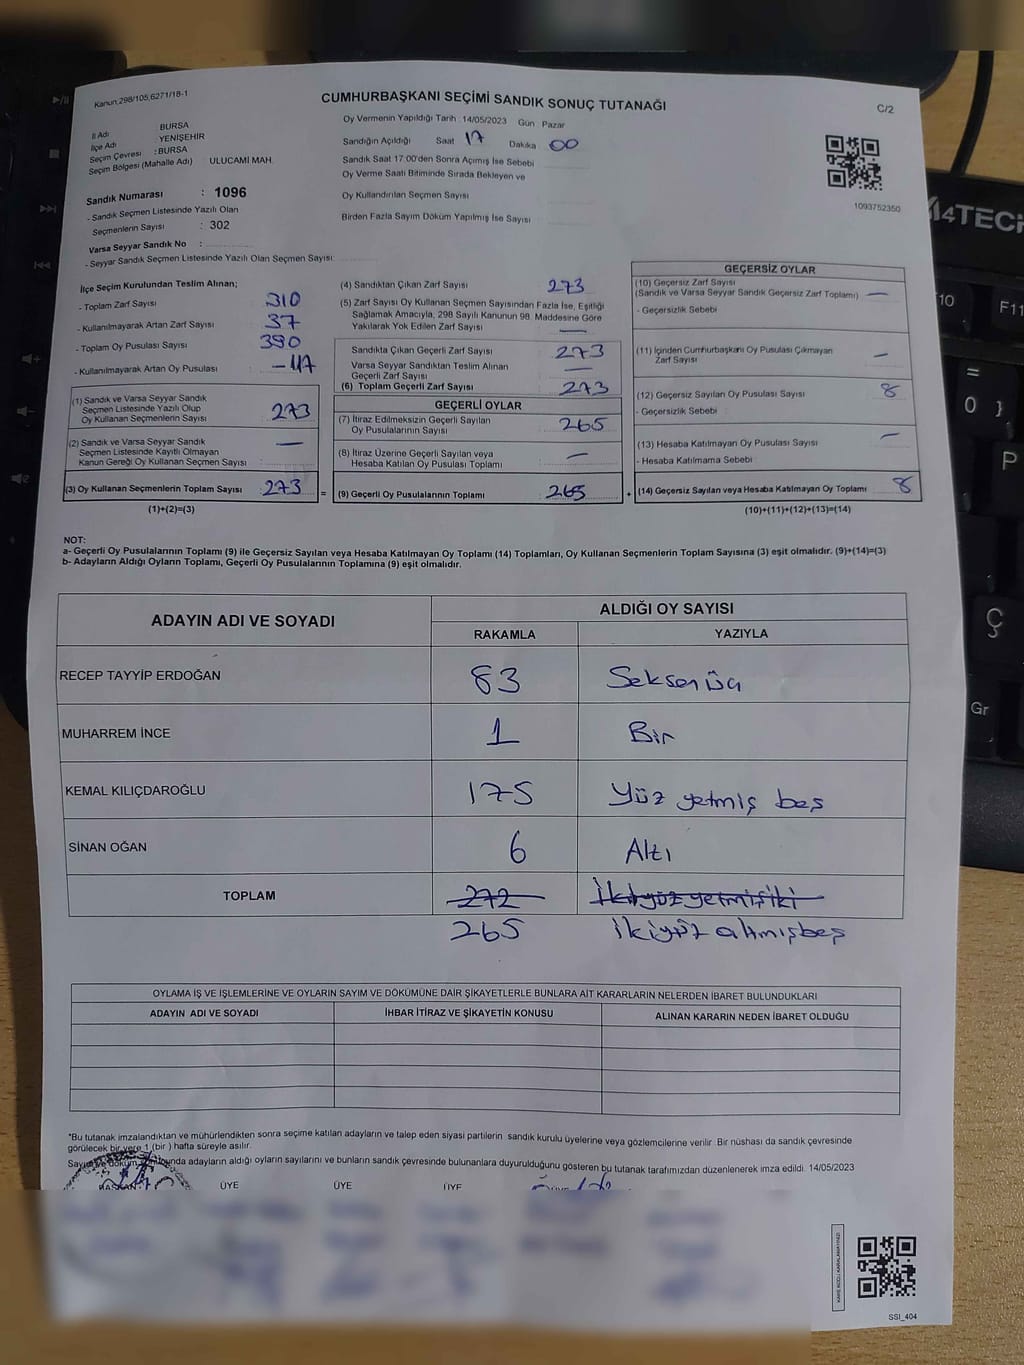 Kanun;298/105;6271/18-1
CUMHURBAŞKANI SEÇİMİ SANDIK SONUÇ TUTANAĞI
C/2
İl Adı BURSA
İlçe Adı YENİŞEHİR
Seçim Çevresi : BURSA
Seçim Bölgesi (Mahalle Adı) ULUCAMİ MAH.
Sandık Numarası : 1096
- Sandık Seçmen Listesinde Yazılı Olan
Seçmenlerin Sayısı : 302
Varsa Seyyar Sandık No :
- Seyyar Sandık Seçmen Listesinde Yazılı Olan Seçmen Sayısı:
Oy Vermenin Yapıldığı Tarih : 14/05/2023 Gün : Pazar
Sandığın Açıldığı Saat 17 Dakika 00
Sandık Saat 17:00'den Sonra Açımış İse Sebebi
Oy Verme Saati Bitiminde Sırada Bekleyen ve
Oy Kullandırılan Seçmen Sayısı
Birden Fazla Sayım Döküm Yapılmış İse Sayısı
1093752350
İlçe Seçim Kurulundan Teslim Alınan;
- Toplam Zarf Sayısı 310
- Kullanılmayarak Artan Zarf Sayısı 37
- Toplam Oy Pusulası Sayısı 390
- Kullanılmayarak Artan Oy Pusulası - 117
(1) Sandık ve Varsa Seyyar Sandık
Seçmen Listesinde Yazılı Olup
Oy Kullanan Seçmenlerin Sayısı 273
(2) Sandık ve Varsa Seyyar Sandık
Seçmen Listesinde Kayıtlı Olmayan
Kanun Gereği Oy Kullanan Seçmen Sayısı : —
(3) Oy Kullanan Seçmenlerin Toplam Sayısı 273 =
(1)+(2)=(3)
(4) Sandıktan Çıkan Zarf Sayısı 273
(5) Zarf Sayısı Oy Kullanan Seçmen Sayısından Fazla İse, Eşitliği
Sağlamak Amacıyla, 298 Sayılı Kanunun 98. Maddesine Göre
Yakılarak Yok Edilen Zarf Sayısı —
Sandıkta Çıkan Geçerli Zarf Sayısı 273
Varsa Seyyar Sandıktan Teslim Alınan
Geçerli Zarf Sayısı —
(6) Toplam Geçerli Zarf Sayısı 273
GEÇERLİ OYLAR
(7) İtiraz Edilmeksizin Geçerli Sayılan
Oy Pusulalarının Sayısı 265
(8) İtiraz Üzerine Geçerli Sayılan veya
Hesaba Katılan Oy Pusulası Toplamı —
(9) Geçerli Oy Pusulalarının Toplamı 265 +
GEÇERSİZ OYLAR
(10) Geçersiz Zarf Sayısı
(Sandık ve Varsa Seyyar Sandık Geçersiz Zarf Toplamı) —
- Geçersizlik Sebebi
(11) İçinden Cumhurbaşkanı Oy Pusulası Çıkmayan
Zarf Sayısı —
(12) Geçersiz Sayılan Oy Pusulası Sayısı 8
- Geçersizlik Sebebi
(13) Hesaba Katılmayan Oy Pusulası Sayısı —
- Hesaba Katılmama Sebebi
(14) Geçersiz Sayılan veya Hesaba Katılmayan Oy Toplamı 8
(10)+(11)+(12)+(13)=(14)
NOT:
a- Geçerli Oy Pusulalarının Toplamı (9) ile Geçersiz Sayılan veya Hesaba Katılmayan Oy Toplamı (14) Toplamları, Oy Kullanan Seçmenlerin Toplam Sayısına (3) eşit olmalıdır. (9)+(14)=(3)
b- Adayların Aldığı Oyların Toplamı, Geçerli Oy Pusulalarının Toplamına (9) eşit olmalıdır.
ADAYIN ADI VE SOYADI
ALDIĞI OY SAYISI
RAKAMLA YAZIYLA
RECEP TAYYİP ERDOĞAN 83 Seksenüç
MUHARREM İNCE 1 Bir
KEMAL KILIÇDAROĞLU 175 Yüz yetmiş beş
SİNAN OĞAN 6 Altı
TOPLAM 272 İkiyüzyetmişiki
265 İkiyüz altmışbeş
OYLAMA İŞ VE İŞLEMLERİNE VE OYLARIN SAYIM VE DÖKÜMÜNE DAİR ŞİKAYETLERLE BUNLARA AİT KARARLARIN NELERDEN İBARET BULUNDUKLARI
ADAYIN ADI VE SOYADI İHBAR İTİRAZ VE ŞİKAYETİN KONUSU ALINAN KARARIN NEDEN İBARET OLDUĞU
*Bu tutanak imzalandıktan ve mühürlendikten sonra seçime katılan adayların ve talep eden siyasi partilerin sandık kurulu üyelerine veya gözlemcilerine verilir. Bir nüshası da sandık çevresinde
görülecek bir yere 1 (bir) hafta süreyle asılır.
adayların aldığı oyların sayılarını ve bunların sandık çevresinde bulunanlara duyurulduğunu gösteren bu tutanak tarafımızdan düzenlenerek imza edildi. 14/05/2023
BAŞKAN ÜYE ÜYE ÜYE
SSI_404
A4TECH
10 F11
=
0 }
P
Ç
Gr